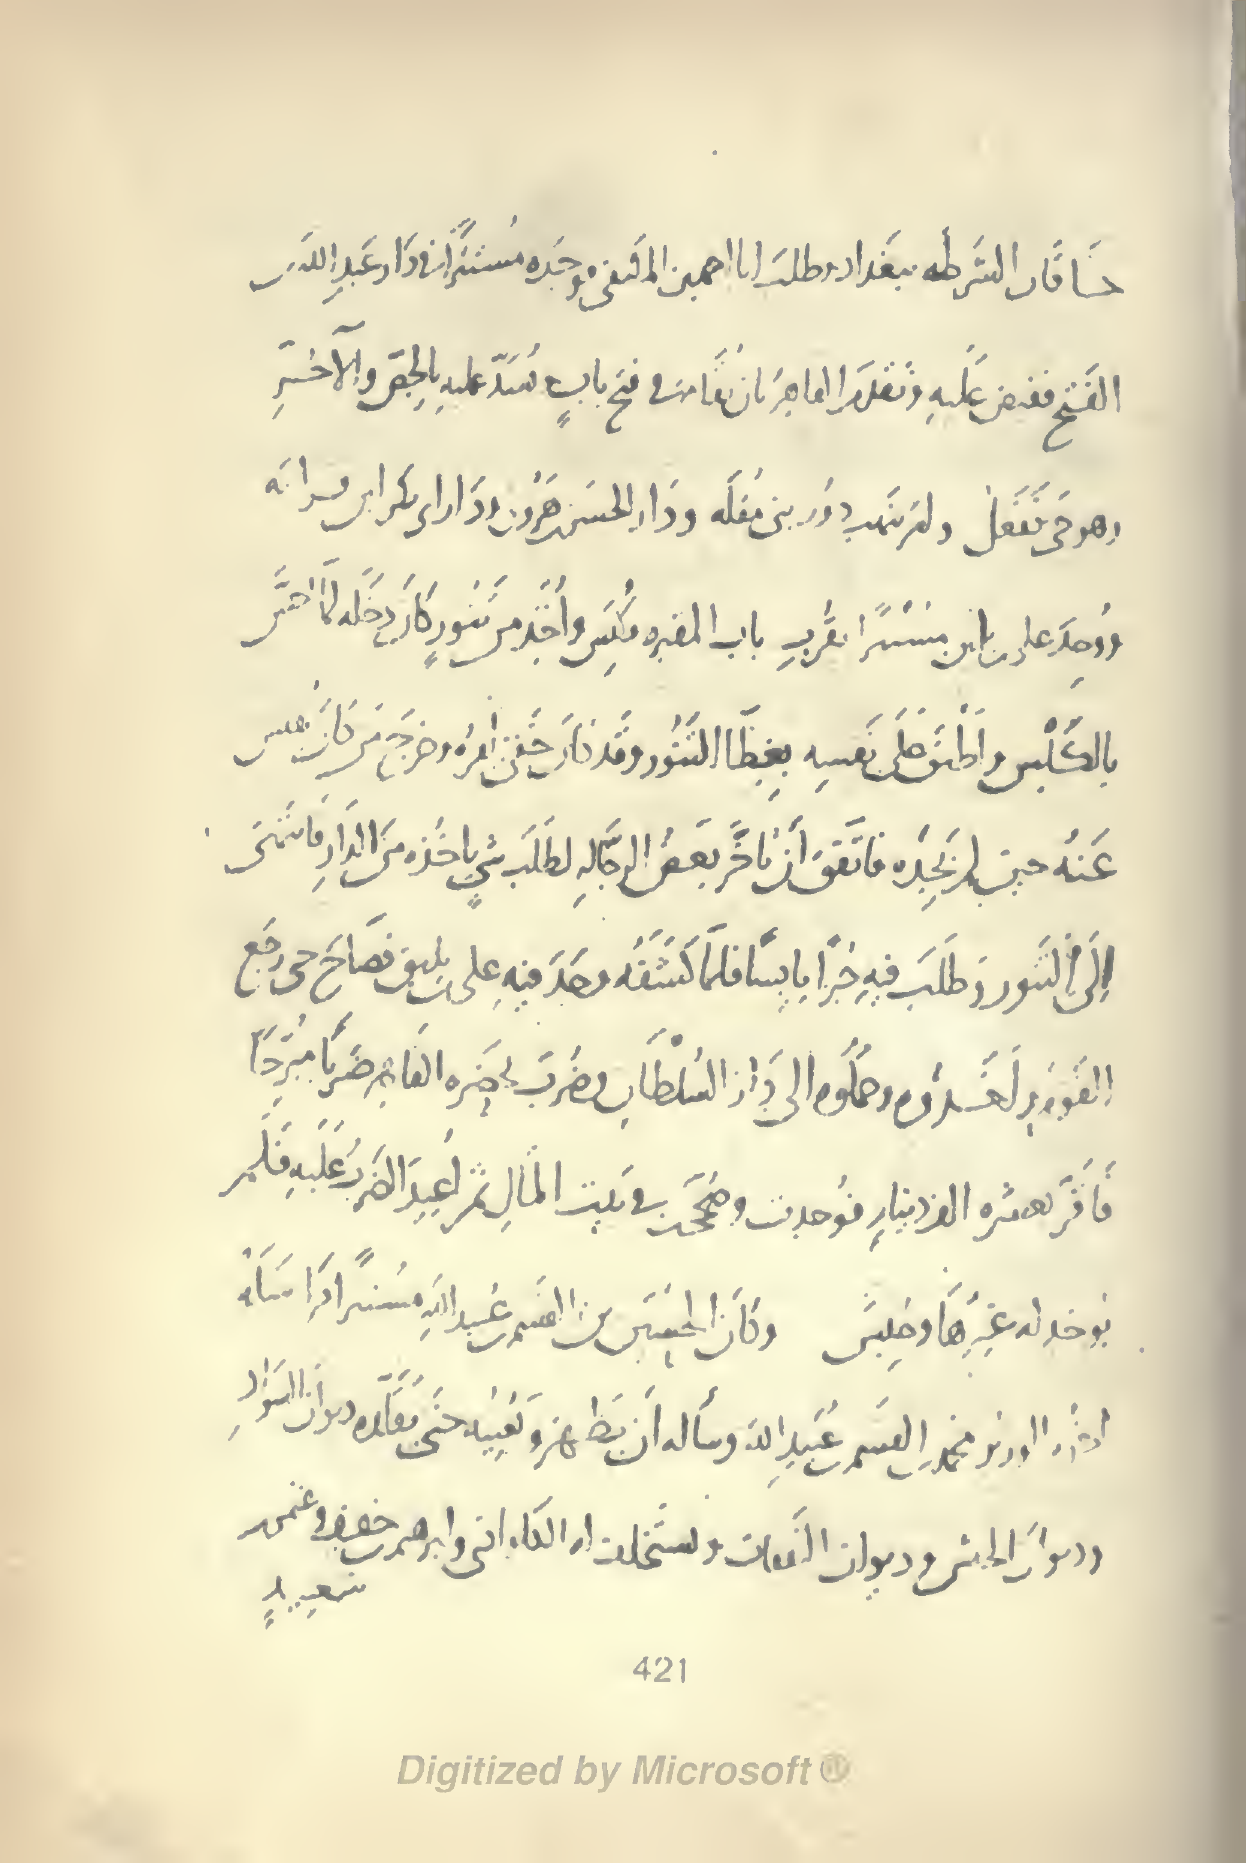 الشرطه ببغداد وطلب ابا احمد بن المكتفى فوجده مستترًا فى دار عبد الله بن
الفتح فقبض عليه وتقدم القاهر بان يقام فى فتح باب ويسدّ عليه بالجصّ والآجُرّ
وهو حى ففعل ولم ينهب دور بنى مقله ودار الحسن بن هرون ودار ابى بكر ابن قرابه
ووُجِدَ على بن بليق مستترًا بقُربِ باب المقيره فكُبِسَ وأُخِذ من تنّورٍ كان دخله لمّا احسّ
بالكَبْس واطبق على نفسه بغطاء التنّور وقد كان خفى امره وخرج من كان يفتش
عَنه حين لم يجده فاتّفق أن تأخّر بعض الرجّاله لطَلَب شىٍ ياخذه من الدار فانتهى
إلى التنّور وطلب فيه خبزًا يابسًا فلمّا كشفه وجد فيه على بن بليق فصاح حتى رجع
القوم فاخذوه وحملوه الى دار السُلْطان وضُرب بحضره القاهر ضربًا مبرّحًا
فأقرّ بعشره الف دينار فوُجدت وصُحّحت فى بيت المال ثم أُعيد الضرب عليه فلم
يوجد له غيرها وحُبس وكان الحسين بن القسم بن عُبيد الله مستترًا فراساه
اخوه الوزير محمد بن القسم بن عُبيد الله وسأله أن يظهر ويُعينه حتى يقلّده ديوان السواد
وديوان الجيش وديوان النفقات ويستخلف له الكلوذانى وابرهيم بن خفيف وعثمن بن
سعيد
421
Digitized by Microsoft ®